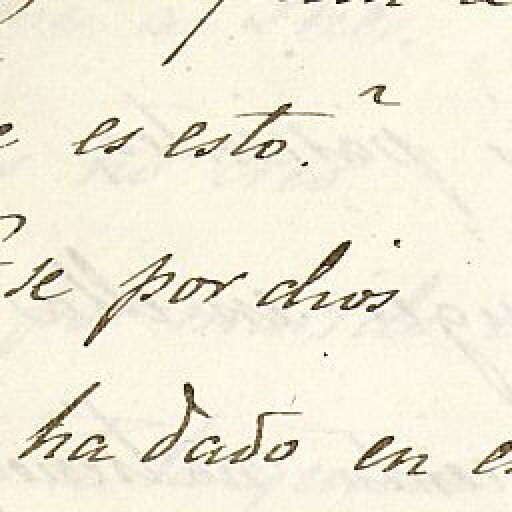 es esto.
se por dios
ha dado en